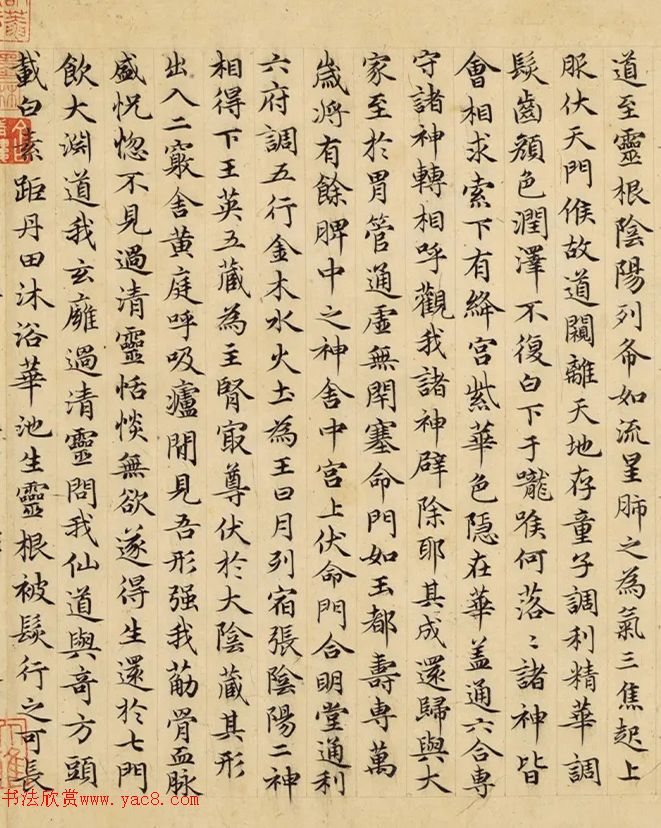 道至靈根陰陽列布如流星肺之為氣三焦起上
服伏天門候故道闚離天地存童子調利精華調
髮齒顔色潤澤不復白下于嚨喉何落〻諸神皆
會相求索下有絳宮紫華色隱在華盖通六合專
守諸神轉相呼觀我諸神辟除耶其成還歸與大
家至於胃管通虛無閉塞命門如玉都壽専萬
歲將有餘脾中之神舍中宮上伏命門合明堂通利
六府調五行金木水火土為王日月列宿張陰陽二神
相得下王英五藏為主腎㝡尊伏於大陰藏其形
出入二竅舍黄庭呼吸廬間見吾形强我筋骨血脉
盛怳惚不見過清靈恬惔無欲遂得生還於七門
飲大淵道我玄廱過清靈問我仙道與奇方頭
戴白素距丹田沐浴華池生靈根被髮行之可長
书法欣赏www.yac8.com